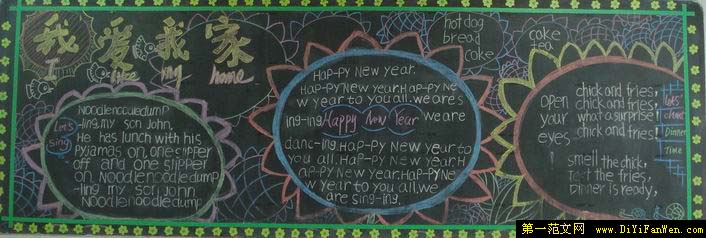 我 爱 我 家
I like my home
Let's
Sing
Noodlenoodledump
-ling, my son John,
He has lunch with his
Pyjamas on, one slipper
off and one slipper
on. Noodlenoodledump
-ling my son John
Noodlenoodledump
Hap-py New year.
Hap-py New year. Hap-py Ne
w year to you all. we are s
ing-ing Happy New Year we are
danc-ing. Hap-py New year to
you all. Hap-py New year. H
ap-py New year. Hap-py Ne
w year to you all. we
are sing-ing.
hot dog
bread
cake
cake
tea
open
your
eyes
chick and fries,
chick and fries,
what a surprise!
chick and fries!
Smell the chick,
Test the fries,
Dinner is ready,
Let's
chant
Dinner
Time
第一范文网 www.DiYiFanWen.com